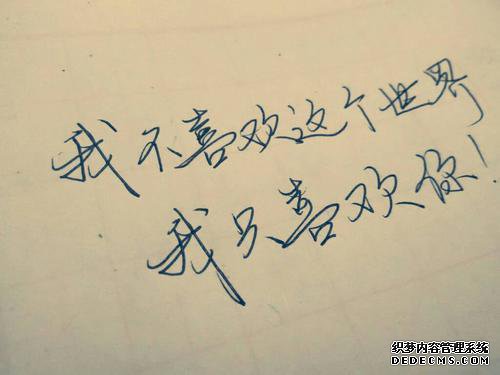 我不喜欢这个世界
我只喜欢你!
织梦内容管理系统
DEDECMS.COM